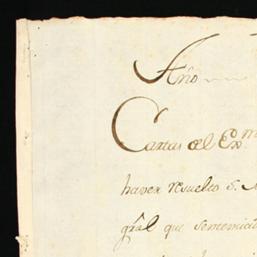 Año
Cartas del Exm
haver resuelto S. M
gràl que sentenci